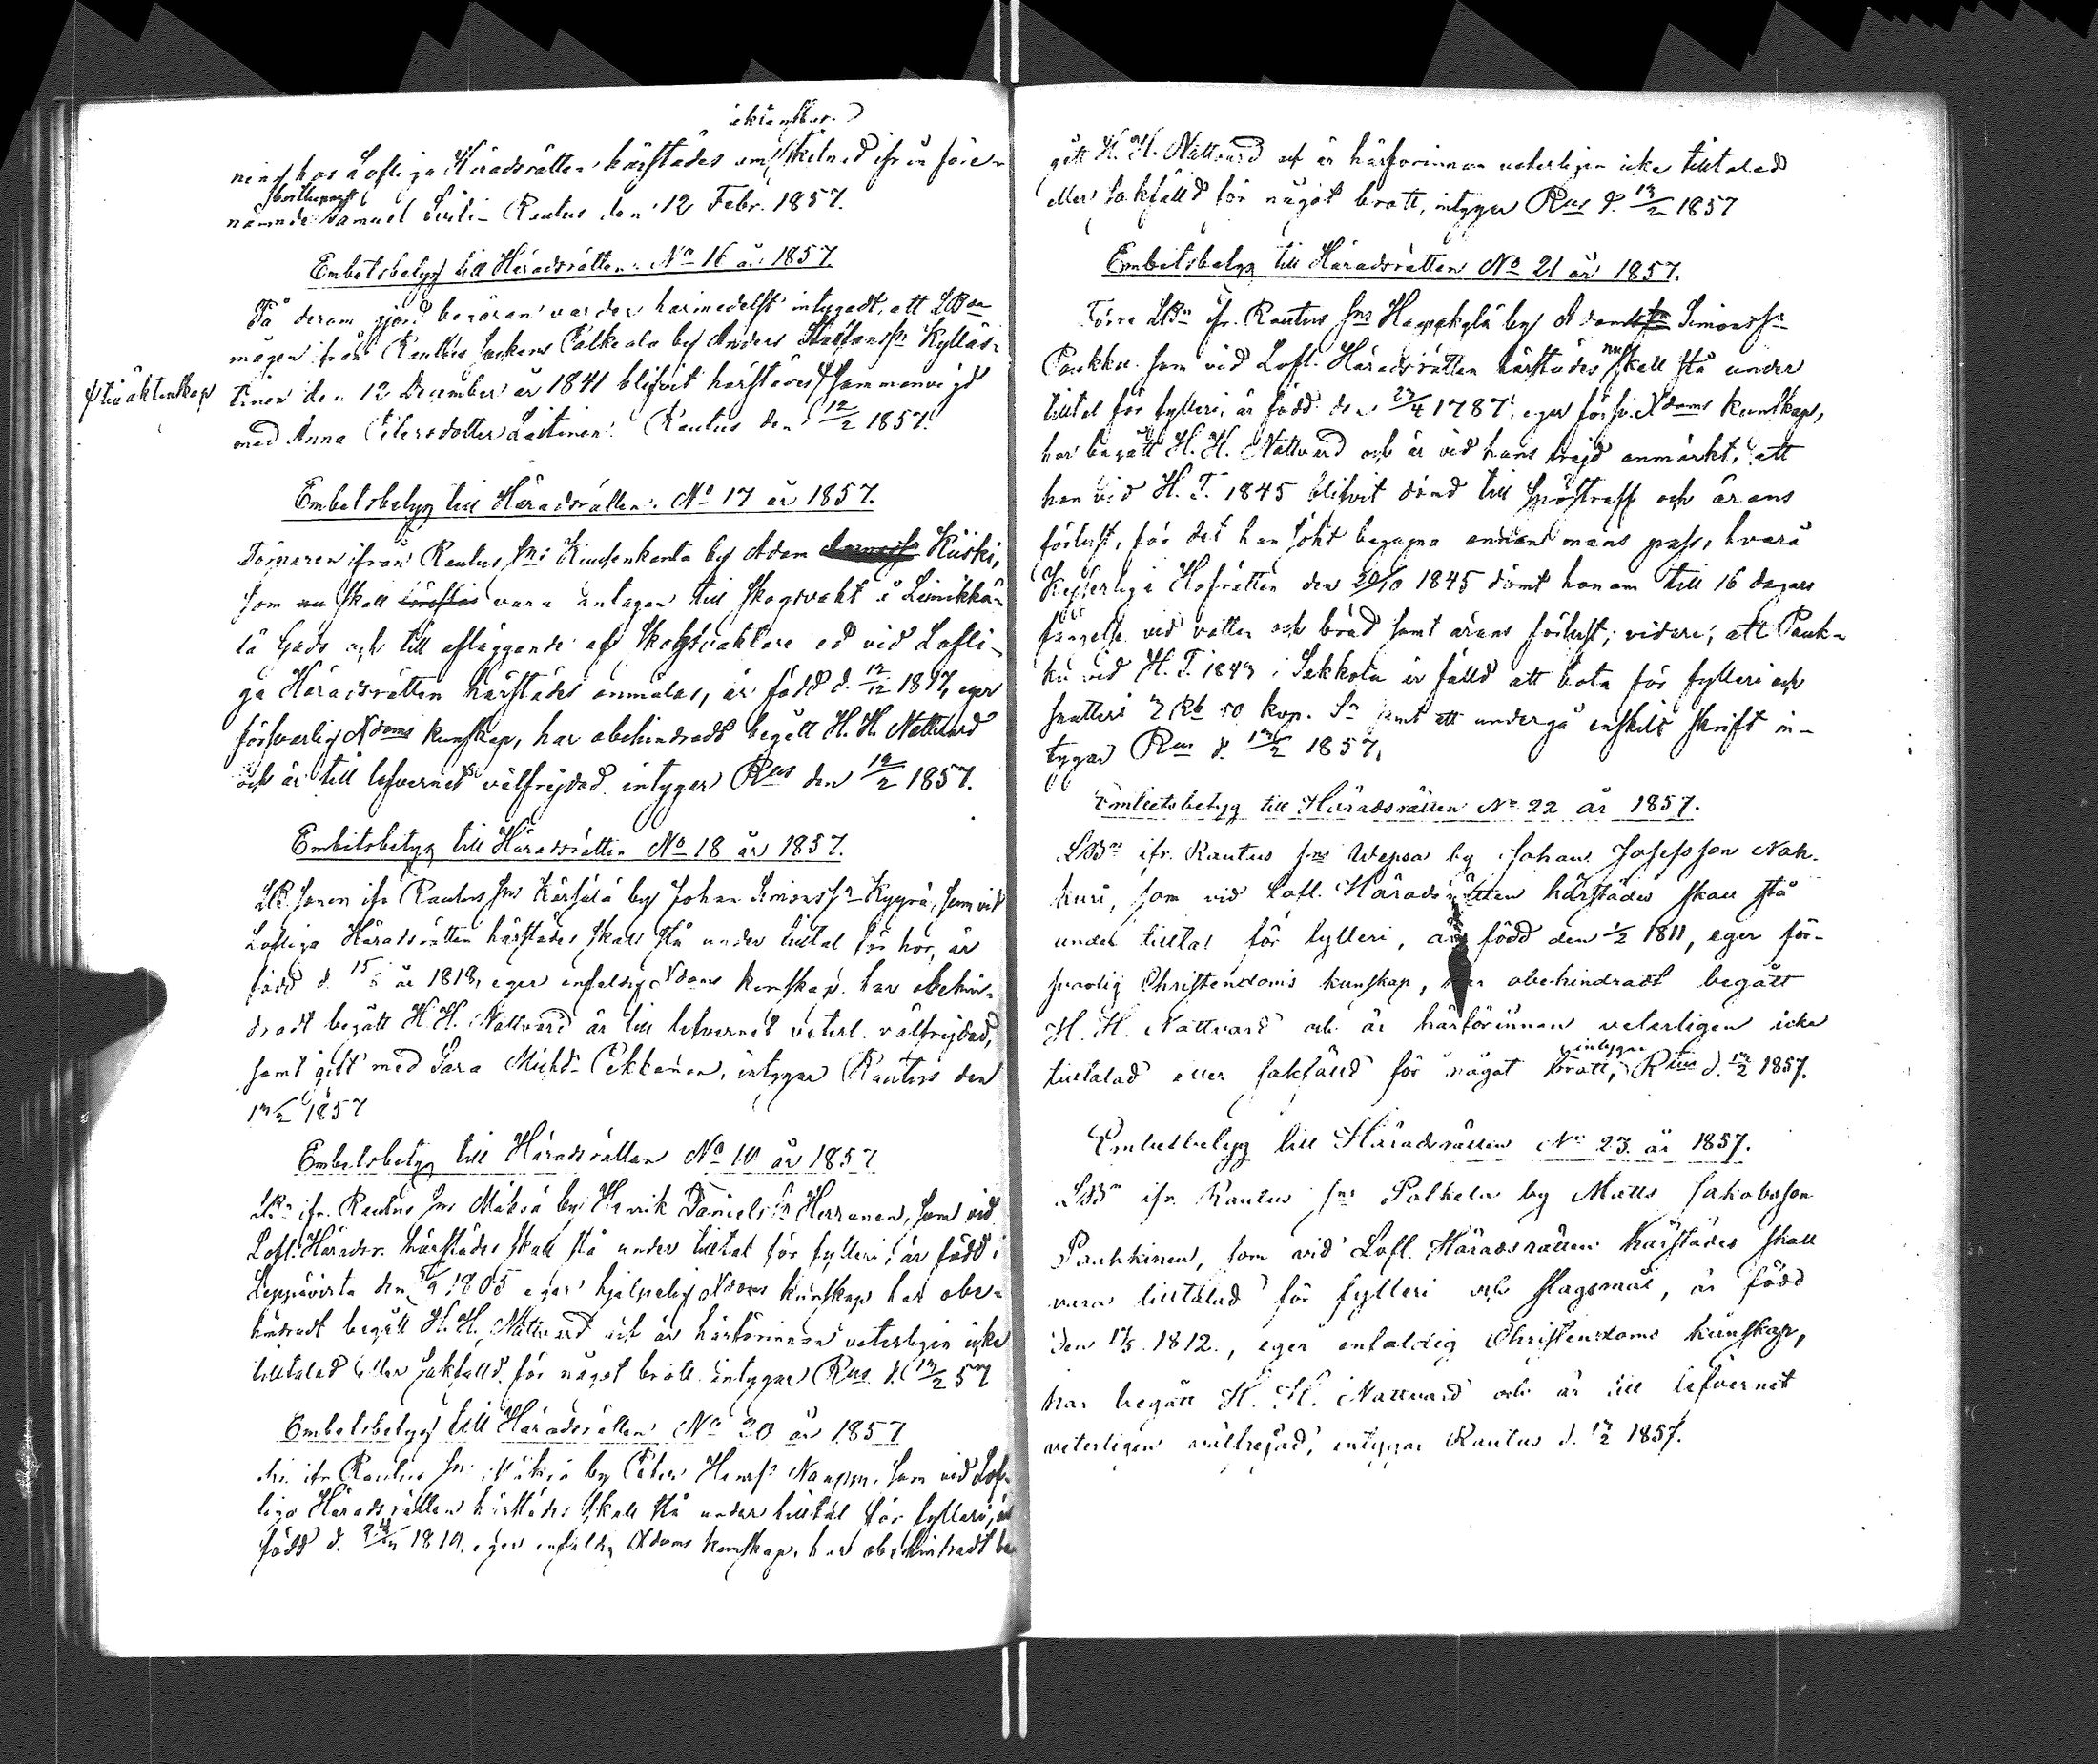 ning hos Lofliga Häradsrätten härstädes om skilnad ifrån före-
nämnde Samuel Rautus den 12 Febr. 1857.
Embetsbetyg till Häradsrätten: No 16 år 1857.
På derom gjord begäran varder härmedelst intygadt, att LBde
mågen från Rautus Sockens Palkeala by Anders Staffansson Kylläs-
tinen den 12 December år 1841 blifvit härstädes sammanvigd
till äktenskap
med Anna Petersdotter Laitinen. Rautus den 12/2 1857.
Embetsbetyg till Häradsrätten: No 17 år 1857.
Torparen ifrån Rautus Sns by Adam Kiiski,
som skall vara antagen till skogsvakt å
lä Gods och till afläggande af skogsvaktare ed vid Lofli-
ga Häradsrätten härstädes anmälas, är född d. 12/12 1817, eger
försvarlig Xdoms kunskap, har obehindradt begått H. H. Nattvard
och är till lefvernet välfrejdad intygar Rus den 12/2 1857.
Embetsbetyg till Häradsrätten No 18 år 1857.
LB sonen ifr Rautus Sns Kärsälä by Johan Simonssn Kyyrä, som vid
Lofliga Häradsrätten härstädes skall stå under tilltal för hor, är
född d. 15 år 1818, eger enfaldig Xdoms kunskap har obehin-
dradt begått H. H. Nattvard är till lefvernet veterl. välfrejdad,
samt gift med Sara Michsdr Pekkanen, intygar Rautus den
13/2 1857
Embetsbetyg till Häradsrätten No 19 år 1857
LBn ifr. Rautus Sns Mäkrä by Henrik Danielssn Herranen, som vid
Lofl. Häradsr. härstädes skall stå under tilltal för fylleri, är född i
Leppävirta den 1805 eger hjelpelig Xdoms kunskap har obe-
hindradt begått H. H. Nattvard och är härförinnan veterligen icke
tilltalad eller sakfälld för något brott intygar Rus d. 13/2 57
Embetsbetyg till Häradsrätten No 20 år 1857
ifr Rautus Sns Mäkrä by Peter Henrssn som vid Lof-
liga Häradsrätten härstädes skall stå under tilltal för fylleri, är
född d. 1819, eger enfaldig Xdoms kunskap, har obehindradt be
gått H. H. Nattvard och är härförinnan veterligen icke tilltalad
eller sakfälld för något brott, intygar Rus d. 13/2 1857
Embetsbetyg till Häradsrätten No 21 år 1857.
Förre LBn ifr. Rautus Sns Haapakylä by Adam Simonssn
Paukku som vid Lofl. Häradsrätten härstädes nu skall stå under
tilltal för fylleri, är född den 27/4 1787, eger försv. Xdoms kunskap,
har begått H. H. Nattvard och är vid hans frejd anmärkt, att
han vid H. T. 1845 blifvit dömd till spöstraff och ärans
förlust, för det han sökt begagna annan mans pass, hvarå
Kejserliga Hofrätten den 20/10 1845 dömt honom till 16 dagars
fängelse vid vatten och bröd samt ärans förlust; vidare, att Pauk-
ku vid H. T. 1849 i Sakkola är fälld att böta för fylleri och
svalleri 7 Rb 50 kop. Sr samt att undergå enskilt skrift in-
tygar Rus d. 13/2 1857.
Embetsbetyg till Häradsrätten No 22 år 1857.
LBn ifr. Rautus Sns Wepsa by Johan Josefsson Nah-
kuri, som vid Lofl. Häradsrätten härstädes skall stå
under tilltal för fylleri, är född den 1/2 1811, eger för-
svarlig Christendoms kunskap, har obehindradt begått
H. H. Nattvard och är härförinnan veterligen icke
tilltalad eller sakfälld för något brott, intygar Rus d. 13/2 1857.
Embetsbetyg till Häradsrätten No 23. år 1857.
LBn ifr. Rautus Sns Palkela by Matts Jakobsson
Paukkinen, som vid Lofl. Häradsrätten härstädes skall
vara tilltalad för fylleri och slagsmål, är född
den 1812., eger enfaldig Christendoms kunskap,
har begått H. H. Nattvard och är till lefvernet
veterligen välfrejdad, intygar Rautus d. 13/2 1857.